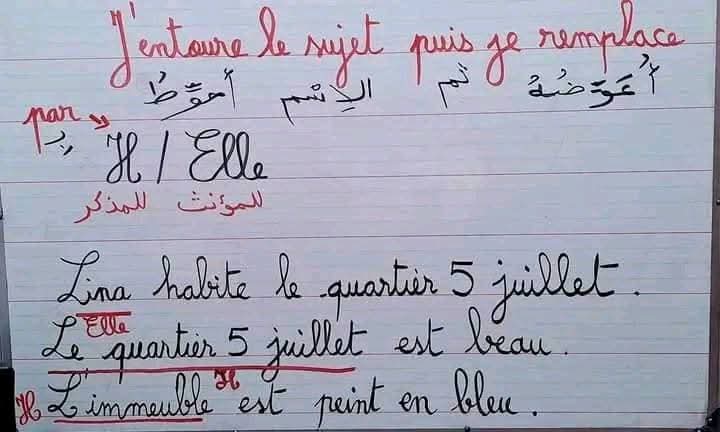 J'entoure le sujet puis je remplace
أحوِّطُ الإسْم ثم أُعَوِّضُهُ
par "
بـِ Il / Elle
للمذكر للمؤنث
Lina habite le quartier 5 juillet.
Elle
Le quartier 5 juillet est beau.
Il
Il L'immeuble est peint en bleu.